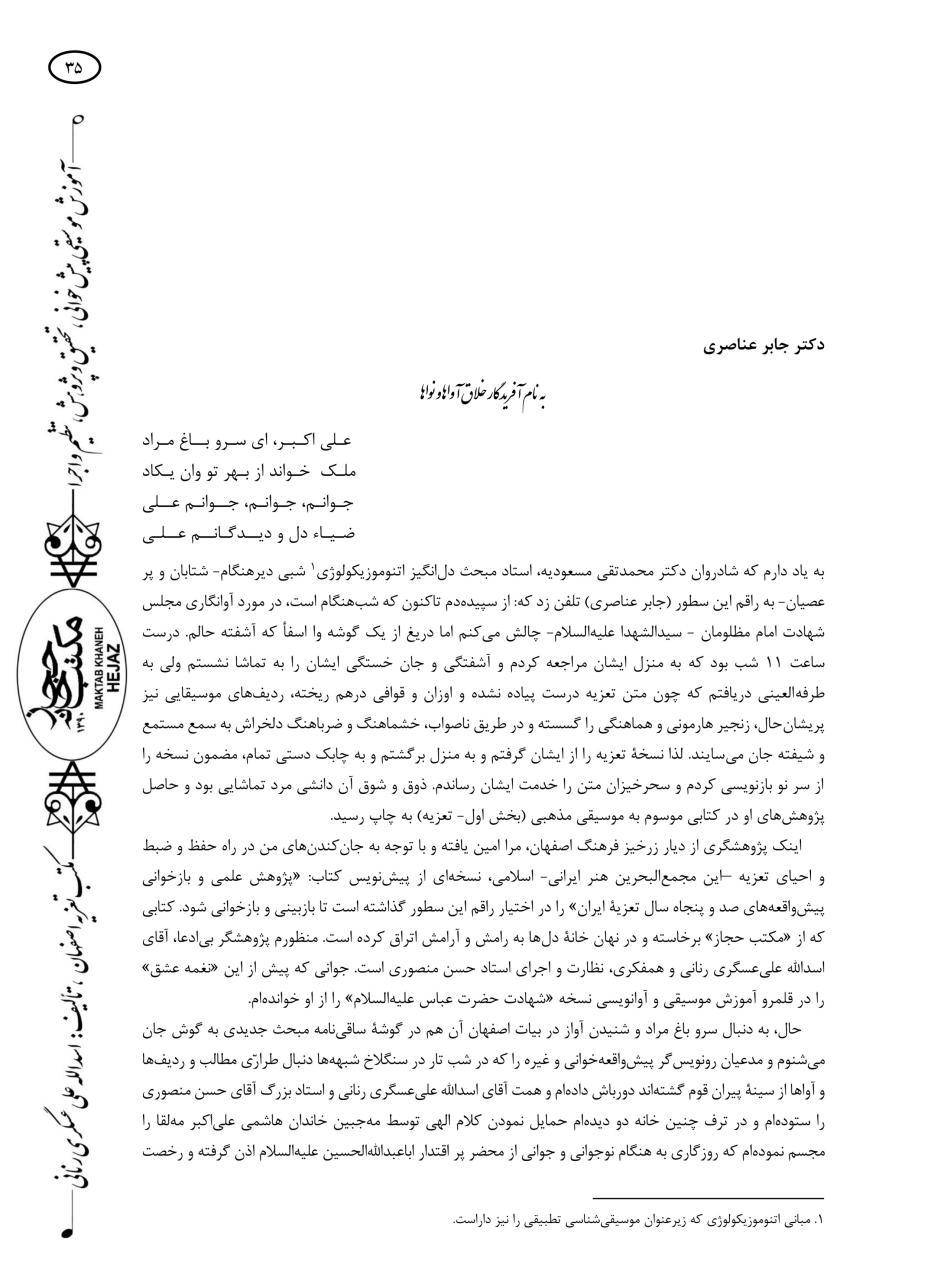 ۳۵
آموزش موسیقی پیش خوانی، تحقیق و پژوهش، تنظیم و اجرا
مکتب خانه حجاز
۱۳۹۰
MAKTAB KHANEH
HEJAZ
مکتب تعزیه اصفهان، تالیف: اسدالله علی عسگری رنانی
دکتر جابر عناصری
به نام آفریدگار خلاق آواها و نواها
علی اکبر، ای سرو باغ مراد
ملک خواند از بهر تو وان یکاد
جوانم، جوانم، جوانم علی
ضیاء دل و دیدگانم علی
به یاد دارم که شادروان دکتر محمدتقی مسعودیه، استاد مبحث دل‌انگیز اتنوموزیکولوژی۱ شبی دیرهنگام- شتابان و پر
عصیان- به راقم این سطور (جابر عناصری) تلفن زد که: از سپیده‌دم تاکنون که شب‌هنگام است، در مورد آوانگاری مجلس
شهادت امام مظلومان - سیدالشهدا علیه‌السلام- چالش می‌کنم اما دریغ از یک گوشه وا اسفاً که آشفته حالم. درست
ساعت ۱۱ شب بود که به منزل ایشان مراجعه کردم و آشفتگی و جان خستگی ایشان را به تماشا نشستم ولی به
طرفه‌العینی دریافتم که چون متن تعزیه درست پیاده نشده و اوزان و قوافی درهم ریخته، ردیف‌های موسیقایی نیز
پریشان‌حال، زنجیر هارمونی و هماهنگی را گسسته و در طریق ناصواب، خشماهنگ و ضرباهنگ دلخراش به سمع مستمع
و شیفته جان می‌سایند. لذا نسخهٔ تعزیه را از ایشان گرفتم و به منزل برگشتم و به چابک دستی تمام، مضمون نسخه را
از سر نو بازنویسی کردم و سحرخیزان متن را خدمت ایشان رساندم. ذوق و شوق آن دانشی مرد تماشایی بود و حاصل
پژوهش‌های او در کتابی موسوم به موسیقی مذهبی (بخش اول- تعزیه) به چاپ رسید.
اینک پژوهشگری از دیار زرخیز فرهنگ اصفهان، مرا امین یافته و با توجه به جان‌کندن‌های من در راه حفظ و ضبط
و احیای تعزیه –این مجمع‌البحرین هنر ایرانی- اسلامی، نسخه‌ای از پیش‌نویس کتاب: «پژوهش علمی و بازخوانی
پیش‌واقعه‌های صد و پنجاه سال تعزیهٔ ایران» را در اختیار راقم این سطور گذاشته است تا بازبینی و بازخوانی شود. کتابی
که از «مکتب حجاز» برخاسته و در نهان خانهٔ دل‌ها به رامش و آرامش اتراق کرده است. منظورم پژوهشگر بی‌ادعا، آقای
اسدالله علی‌عسگری رنانی و همفکری، نظارت و اجرای استاد حسن منصوری است. جوانی که پیش از این «نغمه عشق»
را در قلمرو آموزش موسیقی و آوانویسی نسخه «شهادت حضرت عباس علیه‌السلام» را از او خوانده‌ام.
حال، به دنبال سرو باغ مراد و شنیدن آواز در بیات اصفهان آن هم در گوشهٔ ساقی‌نامه مبحث جدیدی به گوش جان
می‌شنوم و مدعیان رونویس‌گر پیش‌واقعه‌خوانی و غیره را که در شب تار در سنگلاخ شبهه‌ها دنبال طراری مطالب و ردیف‌ها
و آواها از سینهٔ پیران قوم گشته‌اند دورباش داده‌ام و همت آقای اسدالله علی‌عسگری رنانی و استاد بزرگ آقای حسن منصوری
را ستوده‌ام و در ترف چنین خانه دو دیده‌ام حمایل نمودن کلام الهی توسط مه‌جبین خاندان هاشمی علی‌اکبر مه‌لقا را
مجسم نموده‌ام که روزگاری به هنگام نوجوانی و جوانی از محضر پر اقتدار اباعبدالله‌الحسین علیه‌السلام اذن گرفته و رخصت
۱. مبانی اتنوموزیکولوژی که زیرعنوان موسیقی‌شناسی تطبیقی را نیز داراست.